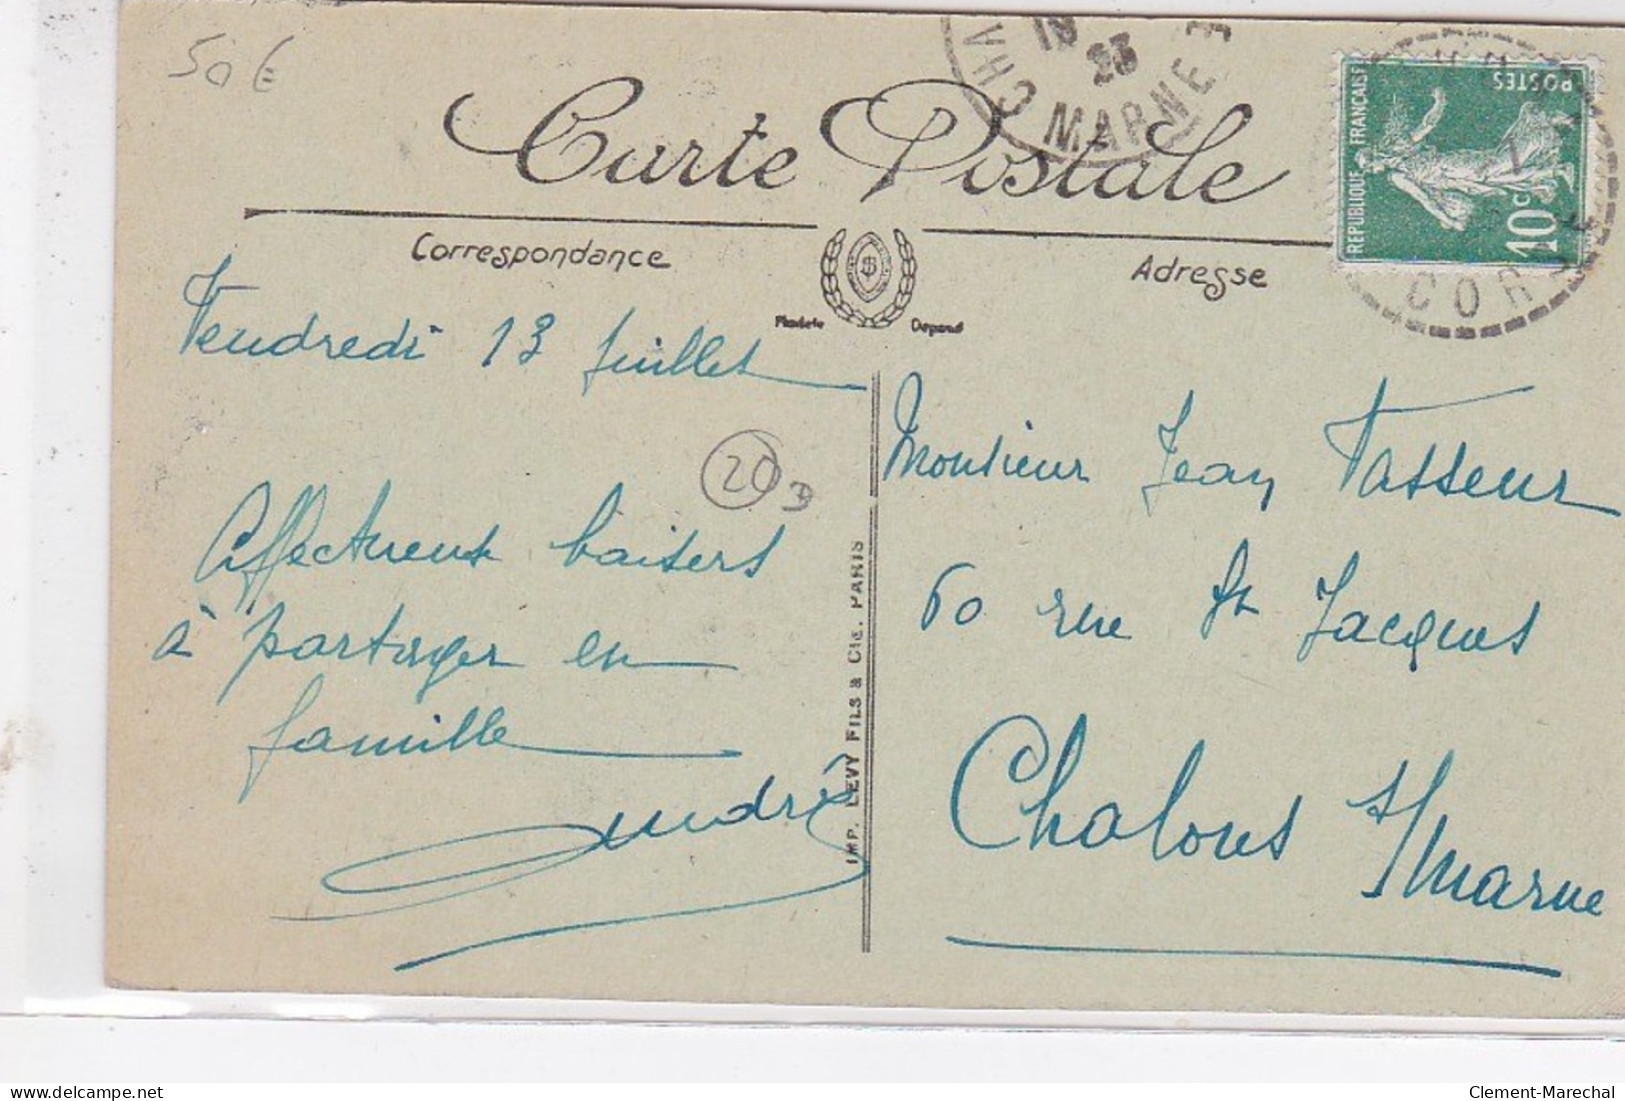 50 €
Carte Postale
Correspondance
Adresse
Modèle Déposé
REPUBLIQUE FRANÇAISE
POSTES
10c
CHA MARNE
19
23
CORSE
Vendredi 13 Juillet
20
Affectueux baisers
à partager en
famille
André
IMP. LEVY FILS & CIE. PARIS
Monsieur Jean Vasseur
60 rue St Jacques
Chalons s/Marne
Clement-Marechal